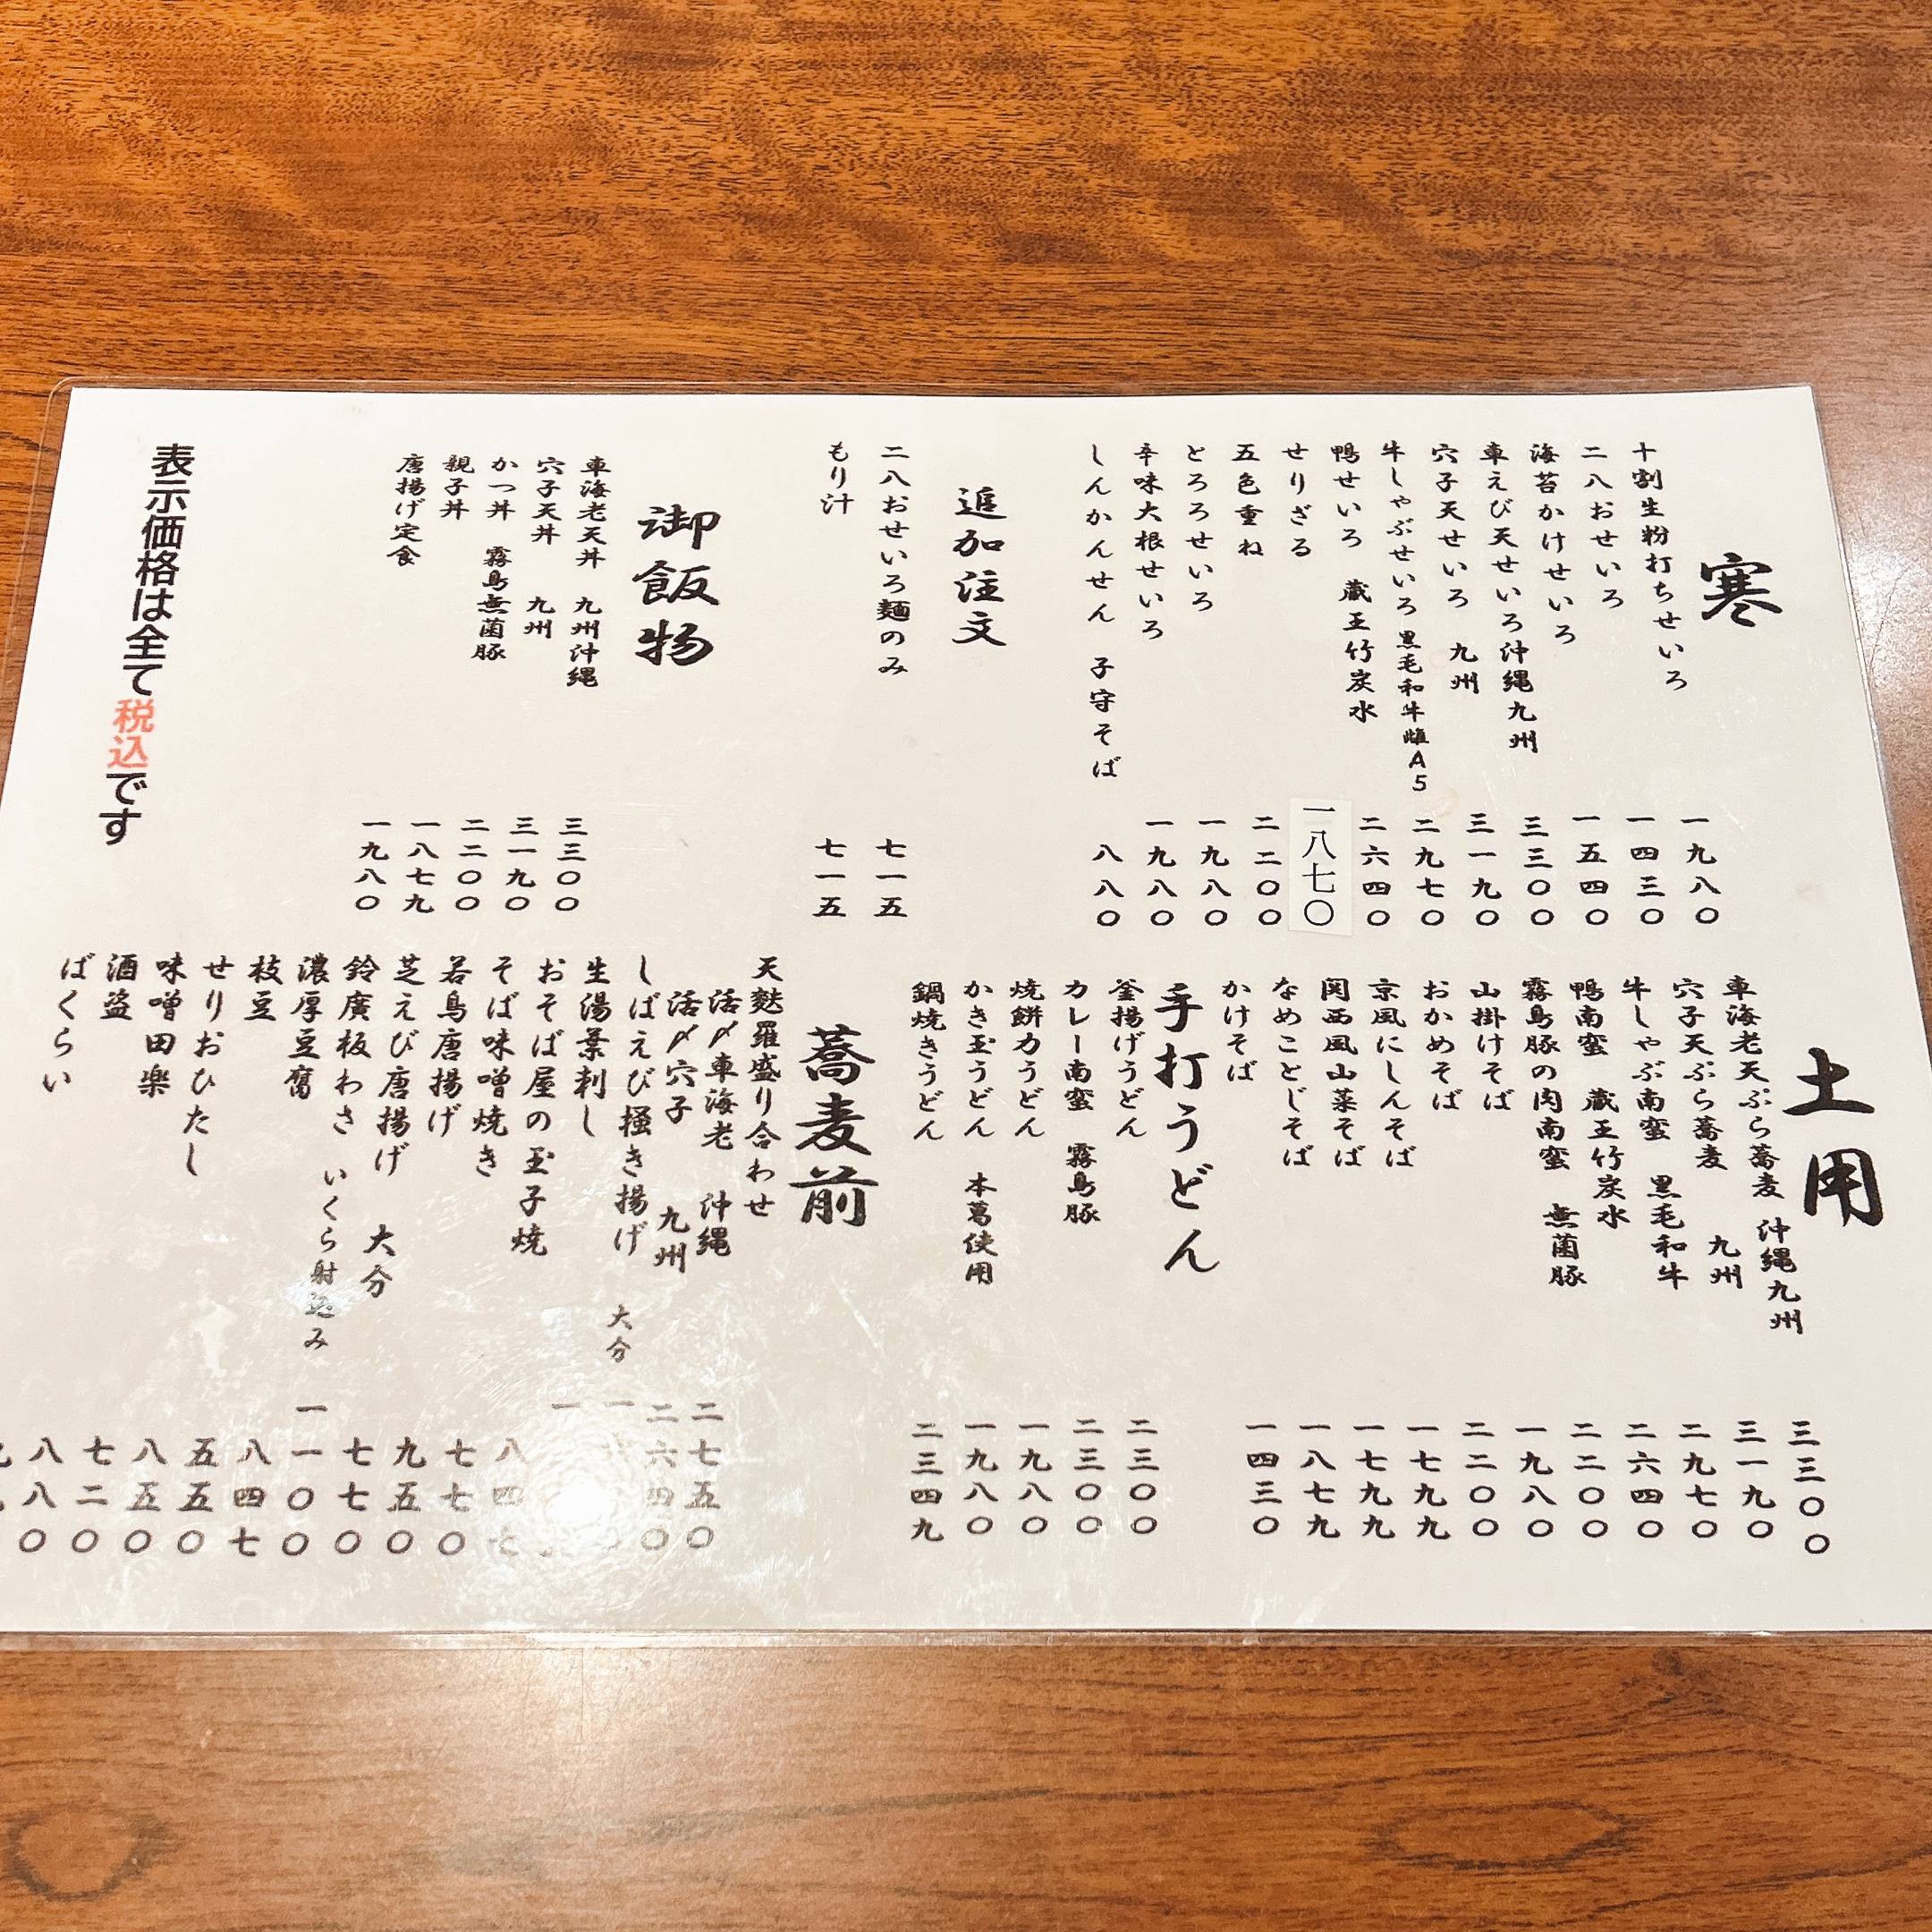 寒
十割生粉打ちせいろ 一九八〇
二八おせいろ 一四三〇
海苔かけせいろ 一五四〇
車えび天せいろ沖縄九州 三三〇〇
穴子天せいろ 九州 三一九〇
牛しゃぶせいろ 黒毛和牛雌A5 二九七〇
鴨せいろ 蔵王竹炭水 二六四〇
せりざる 一八七〇
五色重ね 二二〇〇
とろろせいろ 一九八〇
辛味大根せいろ 一九八〇
しんかんせん 子守そば 八八〇
追加注文
二八おせいろ麺のみ 七一五
もり汁 七一五
御飯物
車海老天丼 九州沖縄 三三〇〇
穴子天丼 九州 三一九〇
かつ丼 霧島無菌豚 二二〇〇
親子丼 一八七九
唐揚げ定食 一九八〇
表示価格は全て税込です
土用
車海老天ぷら蕎麦 沖縄九州 三三〇〇
穴子天ぷら蕎麦 九州 三一九〇
牛しゃぶ南蛮 黒毛和牛 二九七〇
鴨南蛮 蔵王竹炭水 二六四〇
霧島豚の肉南蛮 無菌豚 二二〇〇
山掛けそば 一九八〇
おかめそば 二二〇〇
京風にしんそば 一七九九
関西風山菜そば 一七九九
なめことじそば 一八七九
かけそば 一四三〇
手打うどん
釜揚げうどん 二三〇〇
カレー南蛮 霧島豚 二三〇〇
焼餅力うどん 一九八〇
かき玉うどん 本葛使用 一九八〇
鍋焼きうどん 二三四九
蕎麦前
天麩羅盛り合わせ
活〆車海老 沖縄 二七五〇
活〆穴子 九州 二六四〇
しばえび掻き揚げ 大分
生湯葉刺し
おそば屋の玉子焼 八四七
そば味噌焼き 七七〇
若鳥唐揚げ 九五〇
芝えび唐揚げ 大分 七七〇
鈴廣板わさ 一一〇〇
濃厚豆腐 いくら射込み 八四七
枝豆 五五〇
せりおひたし 八五〇
味噌田楽 七二〇
酒盗 八八〇
ばくらい